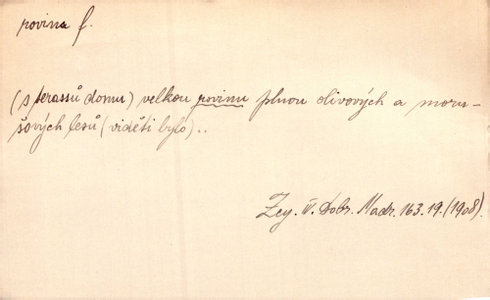 rovina f.
(s terassů domu) velkou rovinu plnou olivových a moru-
šových lesů (viděti bylo)..
Zey. IV. Dobr. Madr. 163.19. (1908).